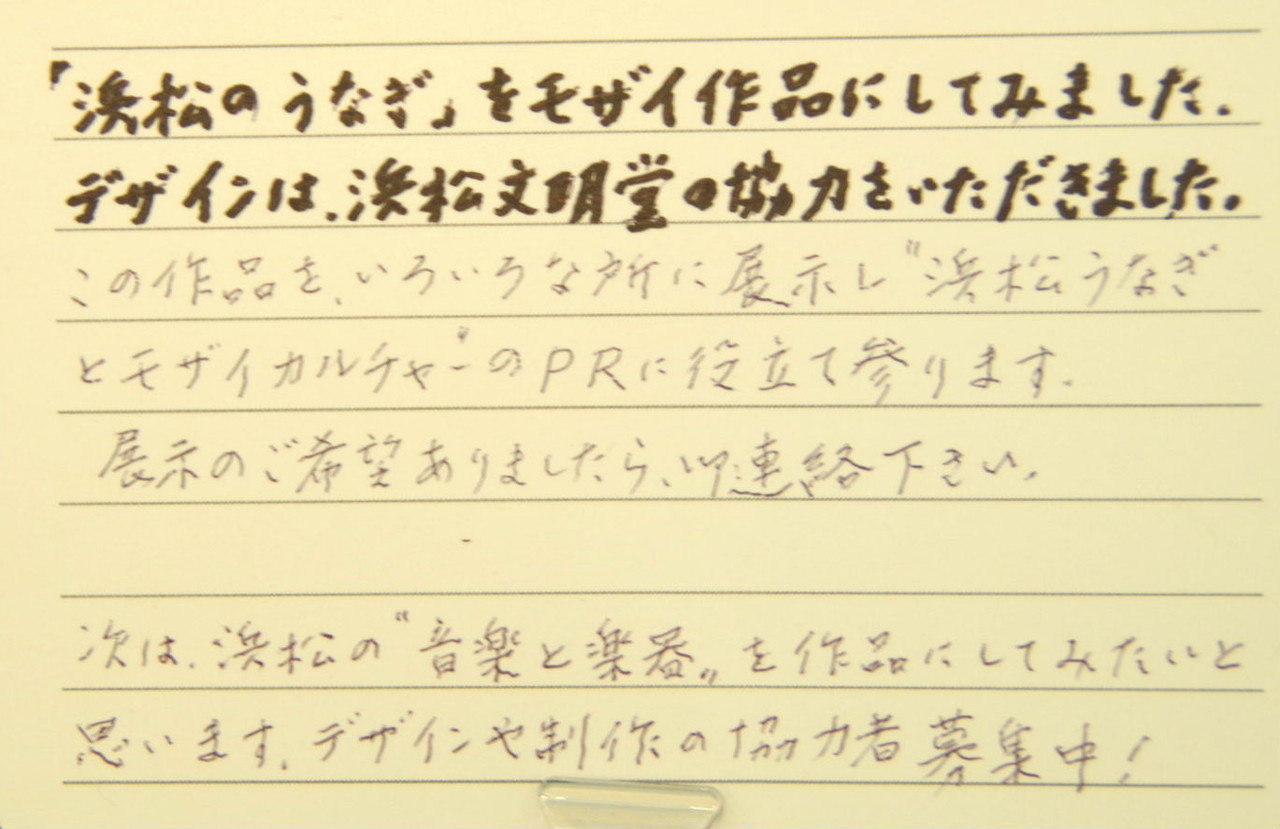 「浜松のうなぎ」をモザイ作品にしてみました。
デザインは、浜松文明堂の協力をいただきました。
この作品を、いろいろな所に展示し〝浜松うなぎ
とモザイカルチャー〟のPRに役立て参ります。
展示のご希望ありましたら、御連絡下さい。
次は、浜松の〝音楽と楽器〟を作品にしてみたいと
思います。デザインや制作の協力者募集中!